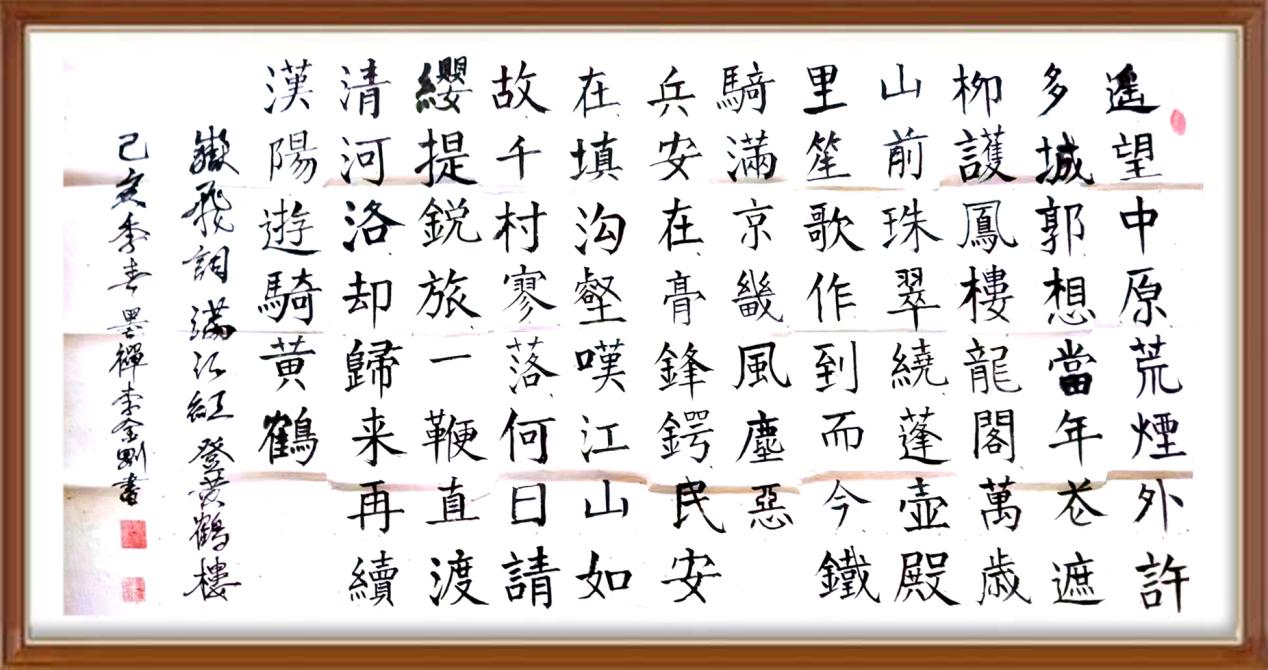 遥望中原荒煙外許
多城郭想當年花遮
柳護鳳樓龍閣萬歳
山前珠翠繞蓬壺殿
里笙歌作到而今鐵
騎滿京畿風塵惡
兵安在膏鋒鍔民安
在填沟壑嘆江山如
故千村寥落何日請
纓提鋭旅一鞭直渡
清河洛却歸来再續
漢陽遊騎黄鶴
嶽飛詞滿江紅登黄鶴樓
己亥季春墨禪李金剛書